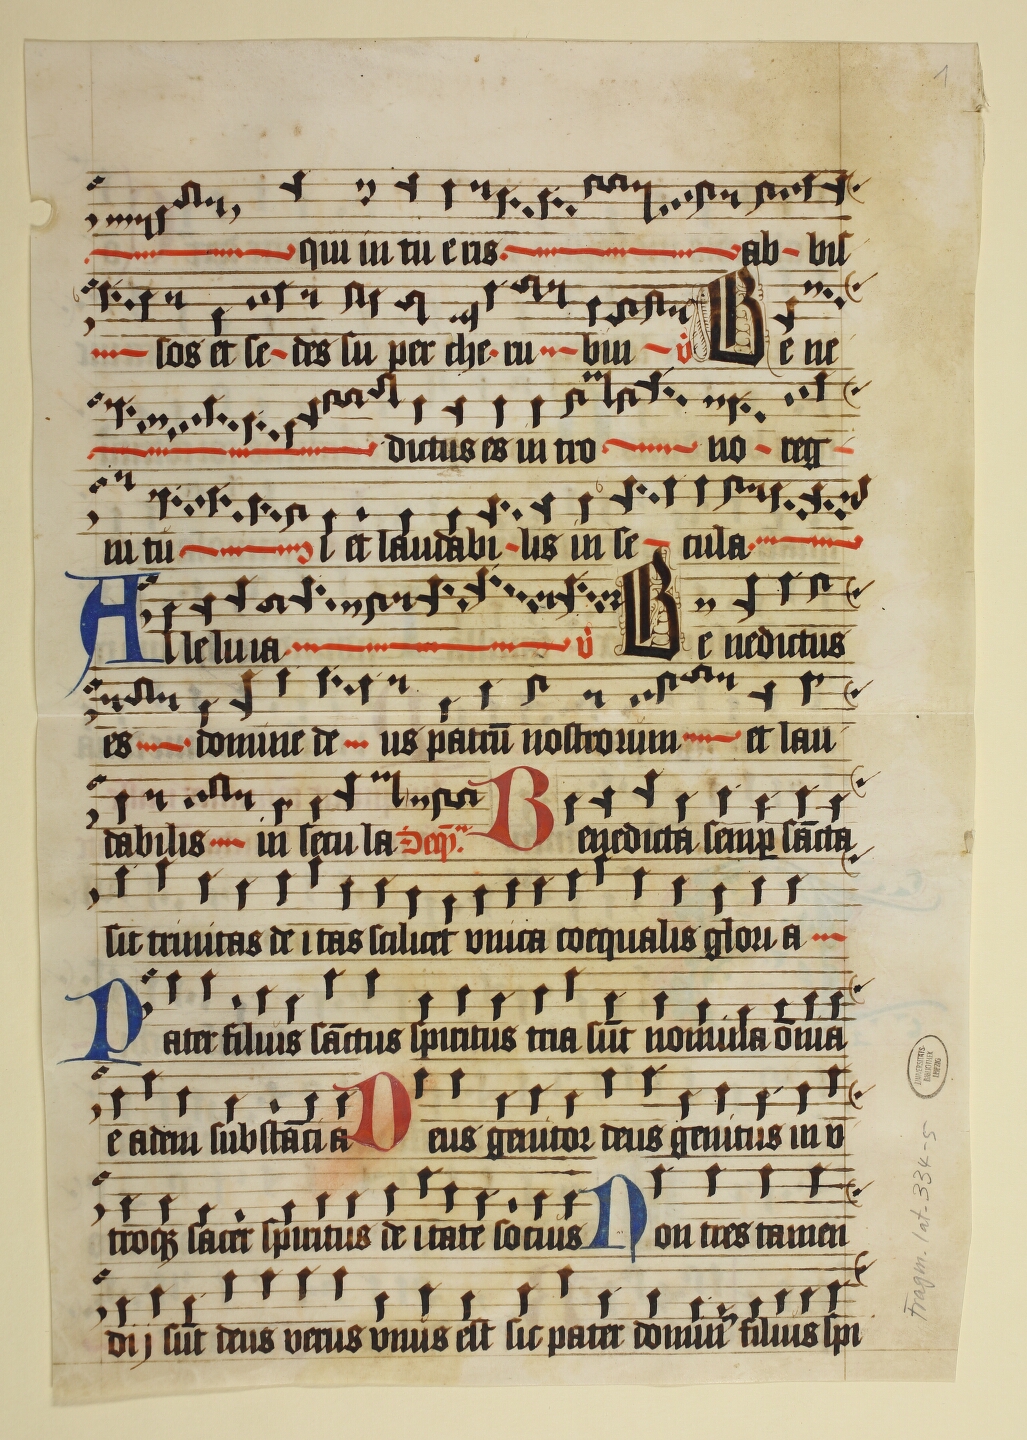 1
qui in tu e ris ab - bis
sos et se - des su per che - ru - bin v̇ B e ne
dictus es in tro - no - reg
ni tu - i et laudabi - lis in se - cula
Alle luia v̇ B e nedictus
es - domine de - us patrū nostrorum - et lau
dabilis - in secu la B enedicta semꝑ sācta
sit trinitas de i tas scilicet vnica coequalis glori a
Pater filius sāctus spiritus tria sūt nomina ōnia
e adem substāci a D eus genitor deus genitus in v
troqꝫ sacer spiritus de i tate socius N on tres tamen
dij sūt deus verus vnus est sic pater filius spi
UNIVERSITÄTS BIBLIOTHEK LEIPZIG
Fragm. lat. 334-5